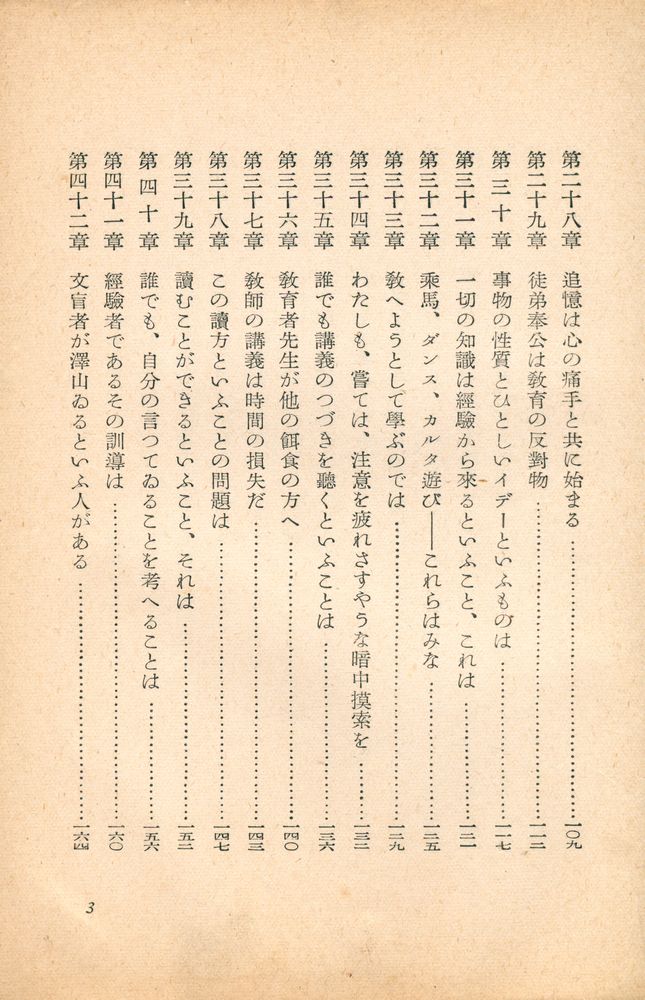 第二十八章 追憶は心の痛手と共に始まる……一〇九
第二十九章 徒弟奉公は敎育の反對物……一一二
第三十章 事物の性質とひとしいイデーといふものは……一一七
第三十一章 一切の知識は經驗から來るといふこと、これは……一二一
第三十二章 乘馬、ダンス、カルタ遊び――これらはみな……一二五
第三十三章 敎へようとして學ぶのでは……一二九
第三十四章 わたしも、嘗ては、注意を疲れさすやうな暗中摸索を……一三二
第三十五章 誰でも講義のつづきを聽くといふことは……一三六
第三十六章 敎育者先生が他の餌食の方へ……一四〇
第三十七章 敎師の講義は時間の損失だ……一四三
第三十八章 この讀方といふことの問題は……一四七
第三十九章 讀むことができるといふこと、それは……一五二
第四十章 誰でも、自分の言つてゐることを考へることは……一五六
第四十一章 經驗者であるその訓導は……一六〇
第四十二章 文盲者が澤山ゐるといふ人がある……一六四
3